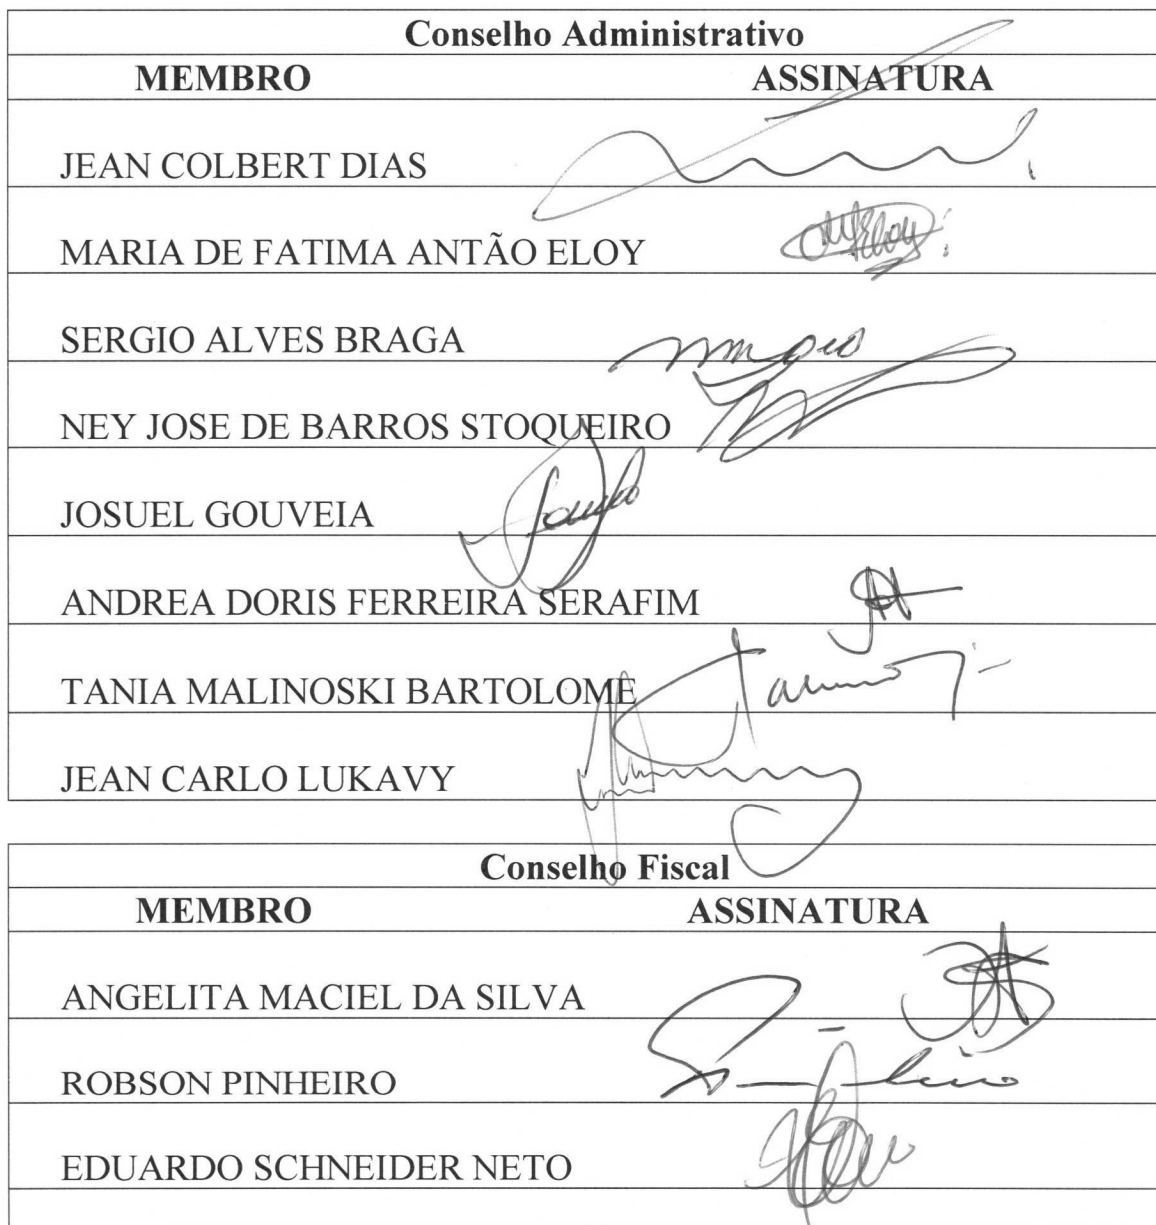 Conselho Administrativo
MEMBRO ASSINATURA
JEAN COLBERT DIAS
MARIA DE FATIMA ANTÃO ELOY
SERGIO ALVES BRAGA
NEY JOSE DE BARROS STOQUEIRO
JOSUEL GOUVEIA
ANDREA DORIS FERREIRA SERAFIM
TANIA MALINOSKI BARTOLOME
JEAN CARLO LUKAVY
Conselho Fiscal
MEMBRO ASSINATURA
ANGELITA MACIEL DA SILVA
ROBSON PINHEIRO
EDUARDO SCHNEIDER NETO